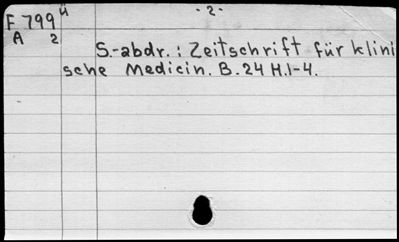 F 799 ü
- 2 -
A 2
S.-abdr.: Zeitschrift für klini
sche Medicin. B. 24 H. 1-4.